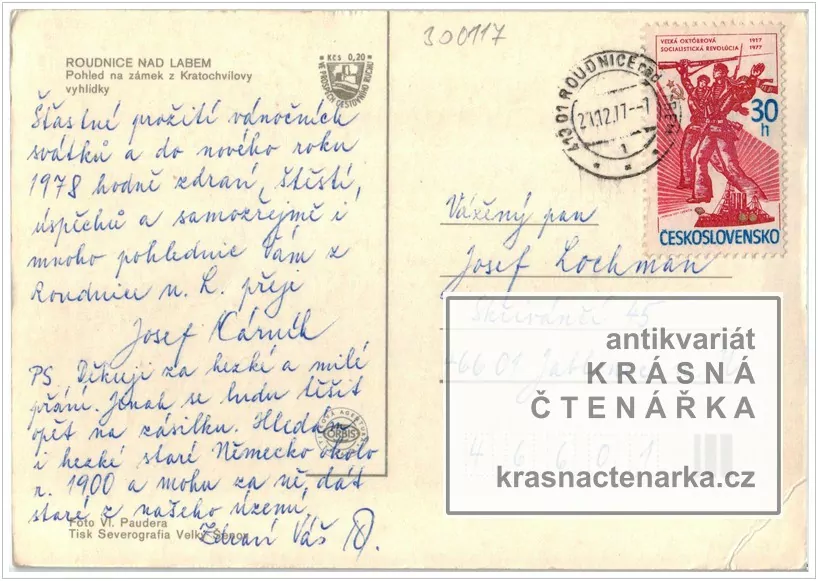 300117
ROUDNICE NAD LABEM
Pohled na zámek z Kratochvílovy
vyhlídky
Kčs 0,20
VE PROSPĚCH CESTOVNÍHO RUCHU
Šťastné prožití vánočních
svátků a do nového roku
1978 hodně zdraví, štěstí,
úspěchů a samozřejmě i
mnoho pohlednic Vám z
Roudnice n. L. přeje
Josef Kárník
PS. Děkuji za hezké a milé
přání. Jinak se budu těšit
opět na zásilku. Hledám
i hezké staré Německo okolo
r. 1900 a mohu za ně dát
staré z našeho území.
Zdraví Váš
ORBIS
Foto Vl. Paudera
Tisk Severografia Velký Šenov
413 01 ROUDNICE nad
21.12.77--7
1
VELKÁ ŘÍJNOVÁ
SOCIALISTICKÁ REVOLÚCIA
1917
1977
30
h
ČESKOSLOVENSKO
Vážený pan
Josef Lochman
Skřivánčí 45
466 01 Jablonec
4 6 6 0 1
antikvariát
KRÁSNÁ
ČTENÁŘKA
krasnactenarka.cz